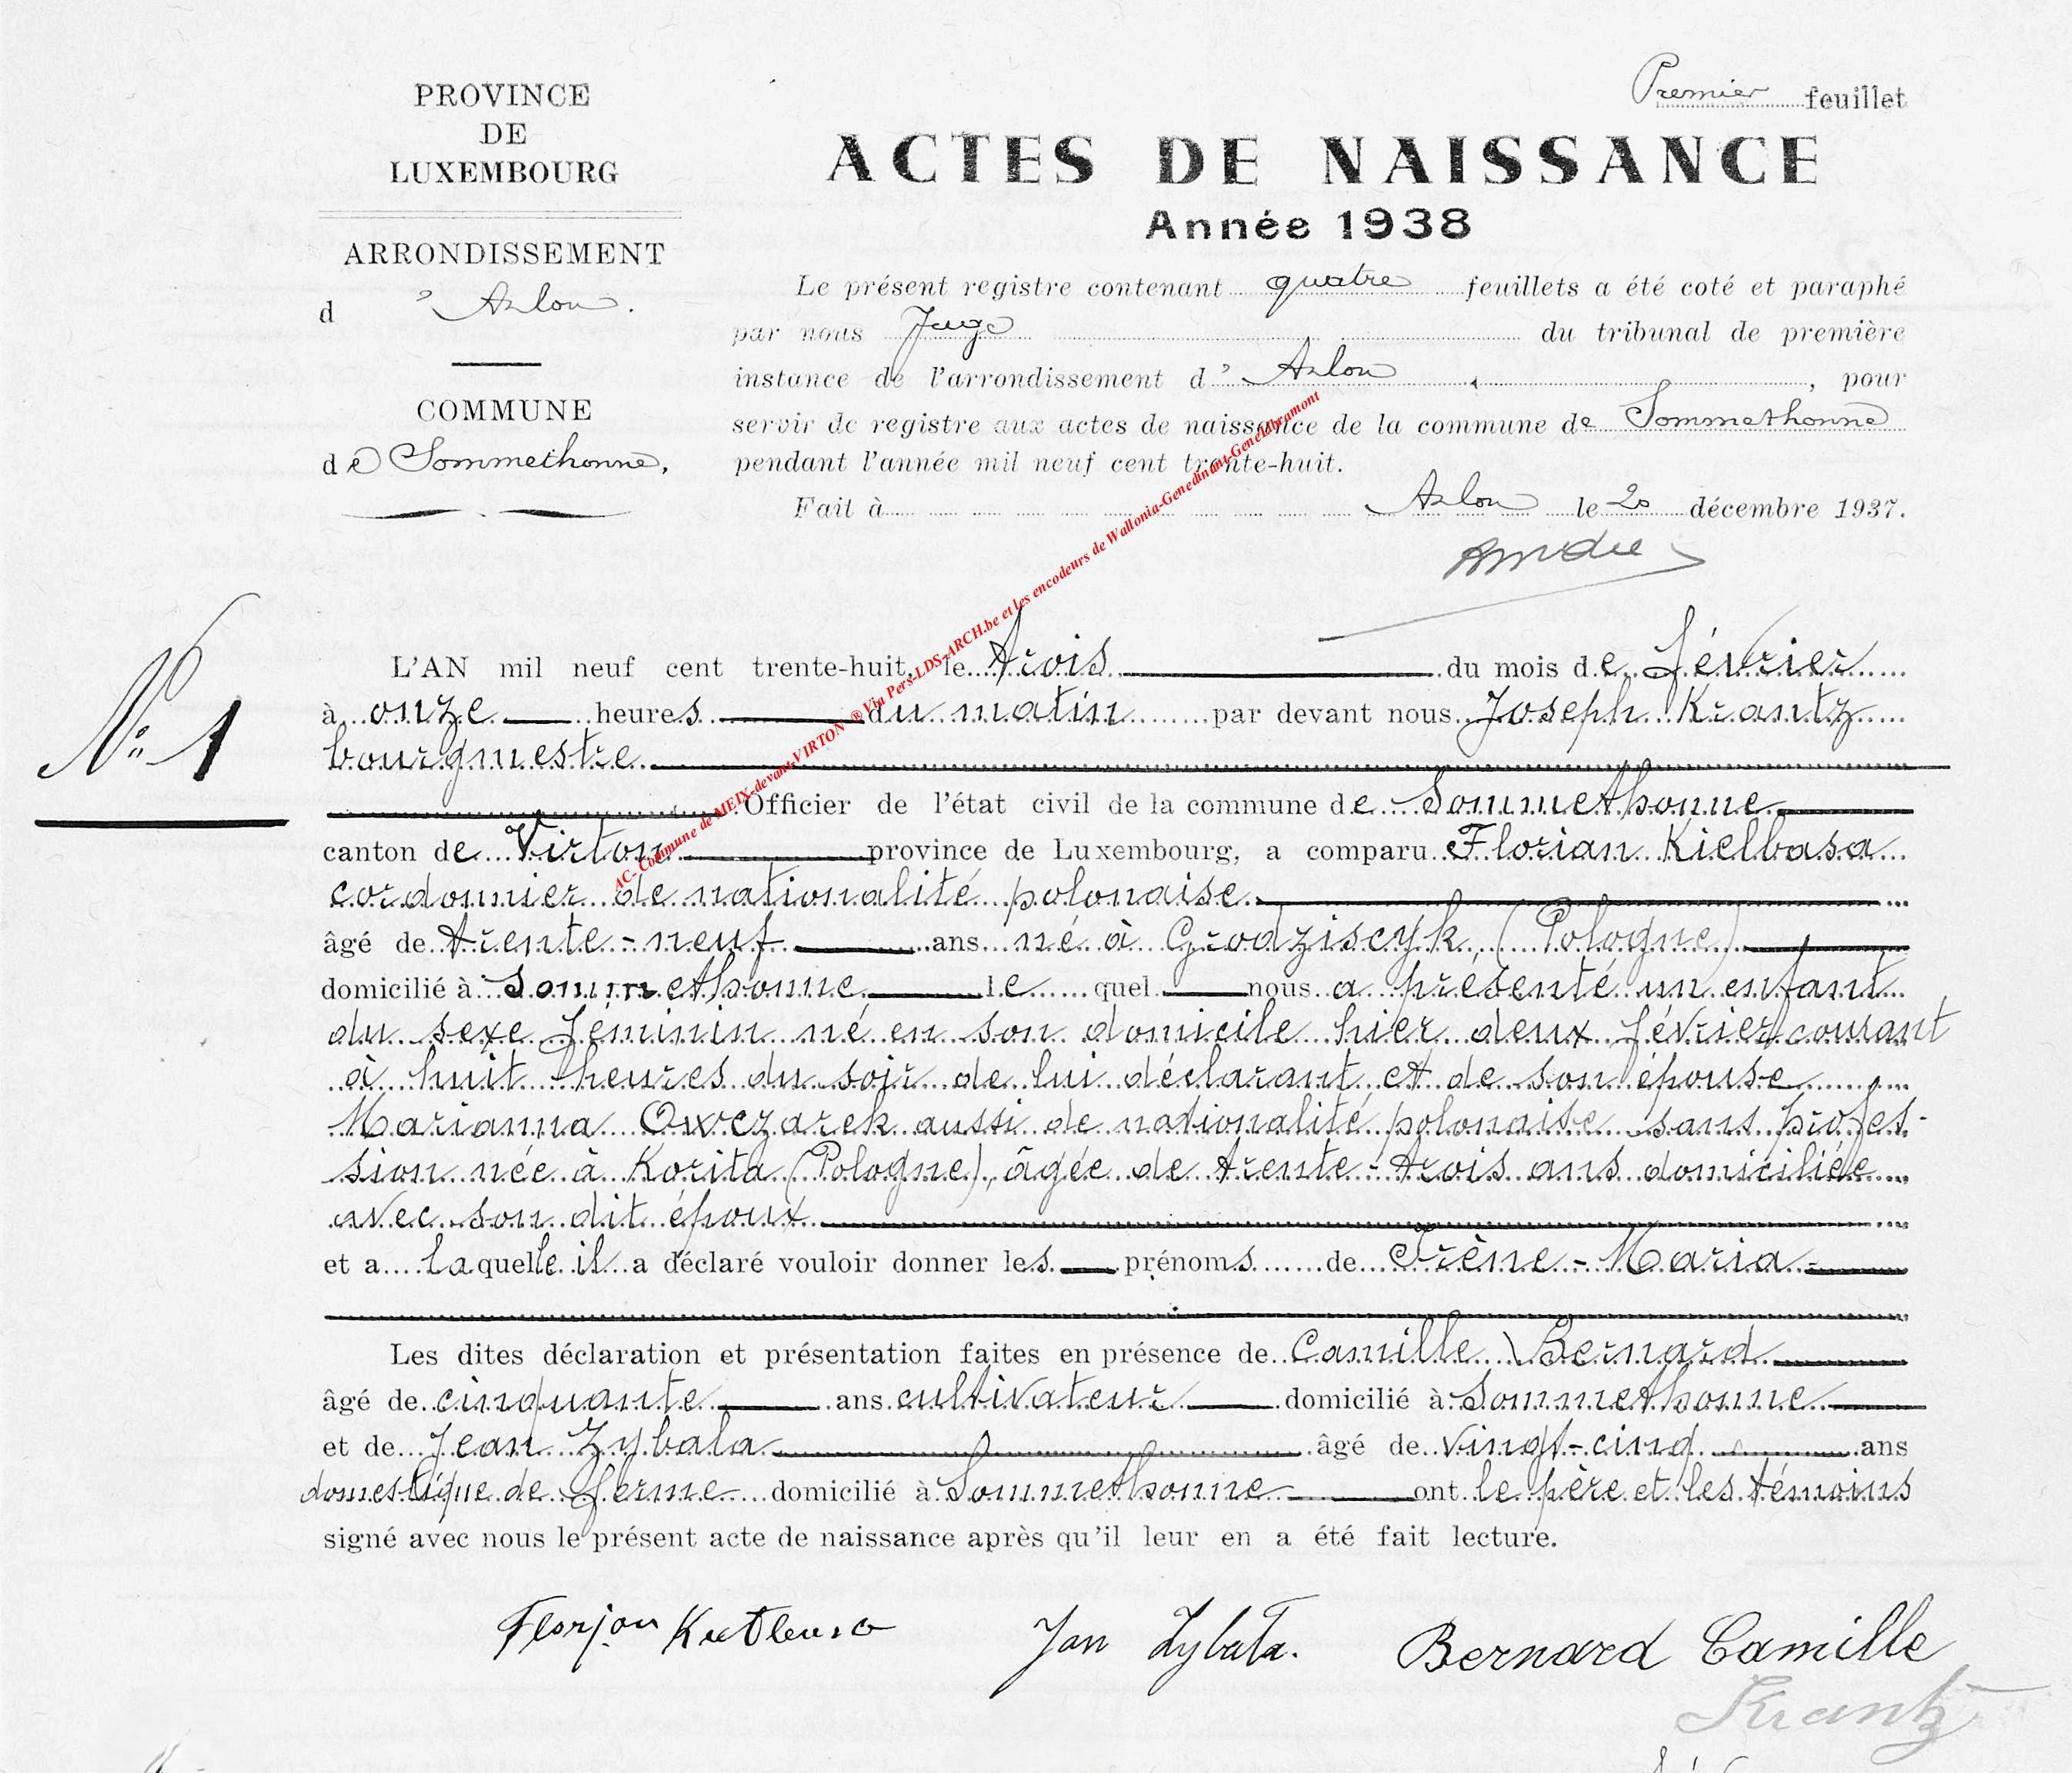 Premier feuillet
PROVINCE
DE
LUXEMBOURG
ARRONDISSEMENT
d'Arlon.
COMMUNE
de Sommethonne,
ACTES DE NAISSANCE
Année 1938
Le présent registre contenant quatre feuillets a été coté et paraphé
par nous Juge du tribunal de première
instance de l'arrondissement d'Arlon, pour
servir de registre aux actes de naissance de la commune de Sommethonne
pendant l'année mil neuf cent trente-huit.
Fait à Arlon le 20 décembre 1937.
AC- Commune de MEIX-devant-VIRTON ® Via Pers-LDS-ARCH.be et les encodeurs de Wallonia-Genedinant-Genelibramont
N° 1
L'AN mil neuf cent trente-huit, le trois du mois de février
à onze heures du matin par devant nous Joseph Krantz
bourgmestre
Officier de l'état civil de la commune de Sommethonne
canton de Virton province de Luxembourg, a comparu Florian Kielbasa
cordonnier de nationalité polonaise
âgé de trente-neuf ans né à Grodziscyk, (Pologne)
domicilié à Sommethonne lequel nous a présenté un enfant
du sexe féminin né en son domicile hier deux février courant
à huit heures du soir de lui déclarant et de son épouse
Marianna Owczarek aussi de nationalité polonaise sans profes-
sion née à Korita (Pologne), âgée de trente-trois ans domiciliée
avec son dit époux
et a laquelle il a déclaré vouloir donner les prénoms de Irène-Maria-
Les dites déclaration et présentation faites en présence de Camille Bernard
âgé de cinquante ans cultivateur domicilié à Sommethonne
et de Jean Zybala âgé de vingt-cinq ans
domestique de ferme domicilié à Sommethonne ont le père et les témoins
signé avec nous le présent acte de naissance après qu'il leur en a été fait lecture.
Florjan Jan Zybala. Bernard Camille
Krantz